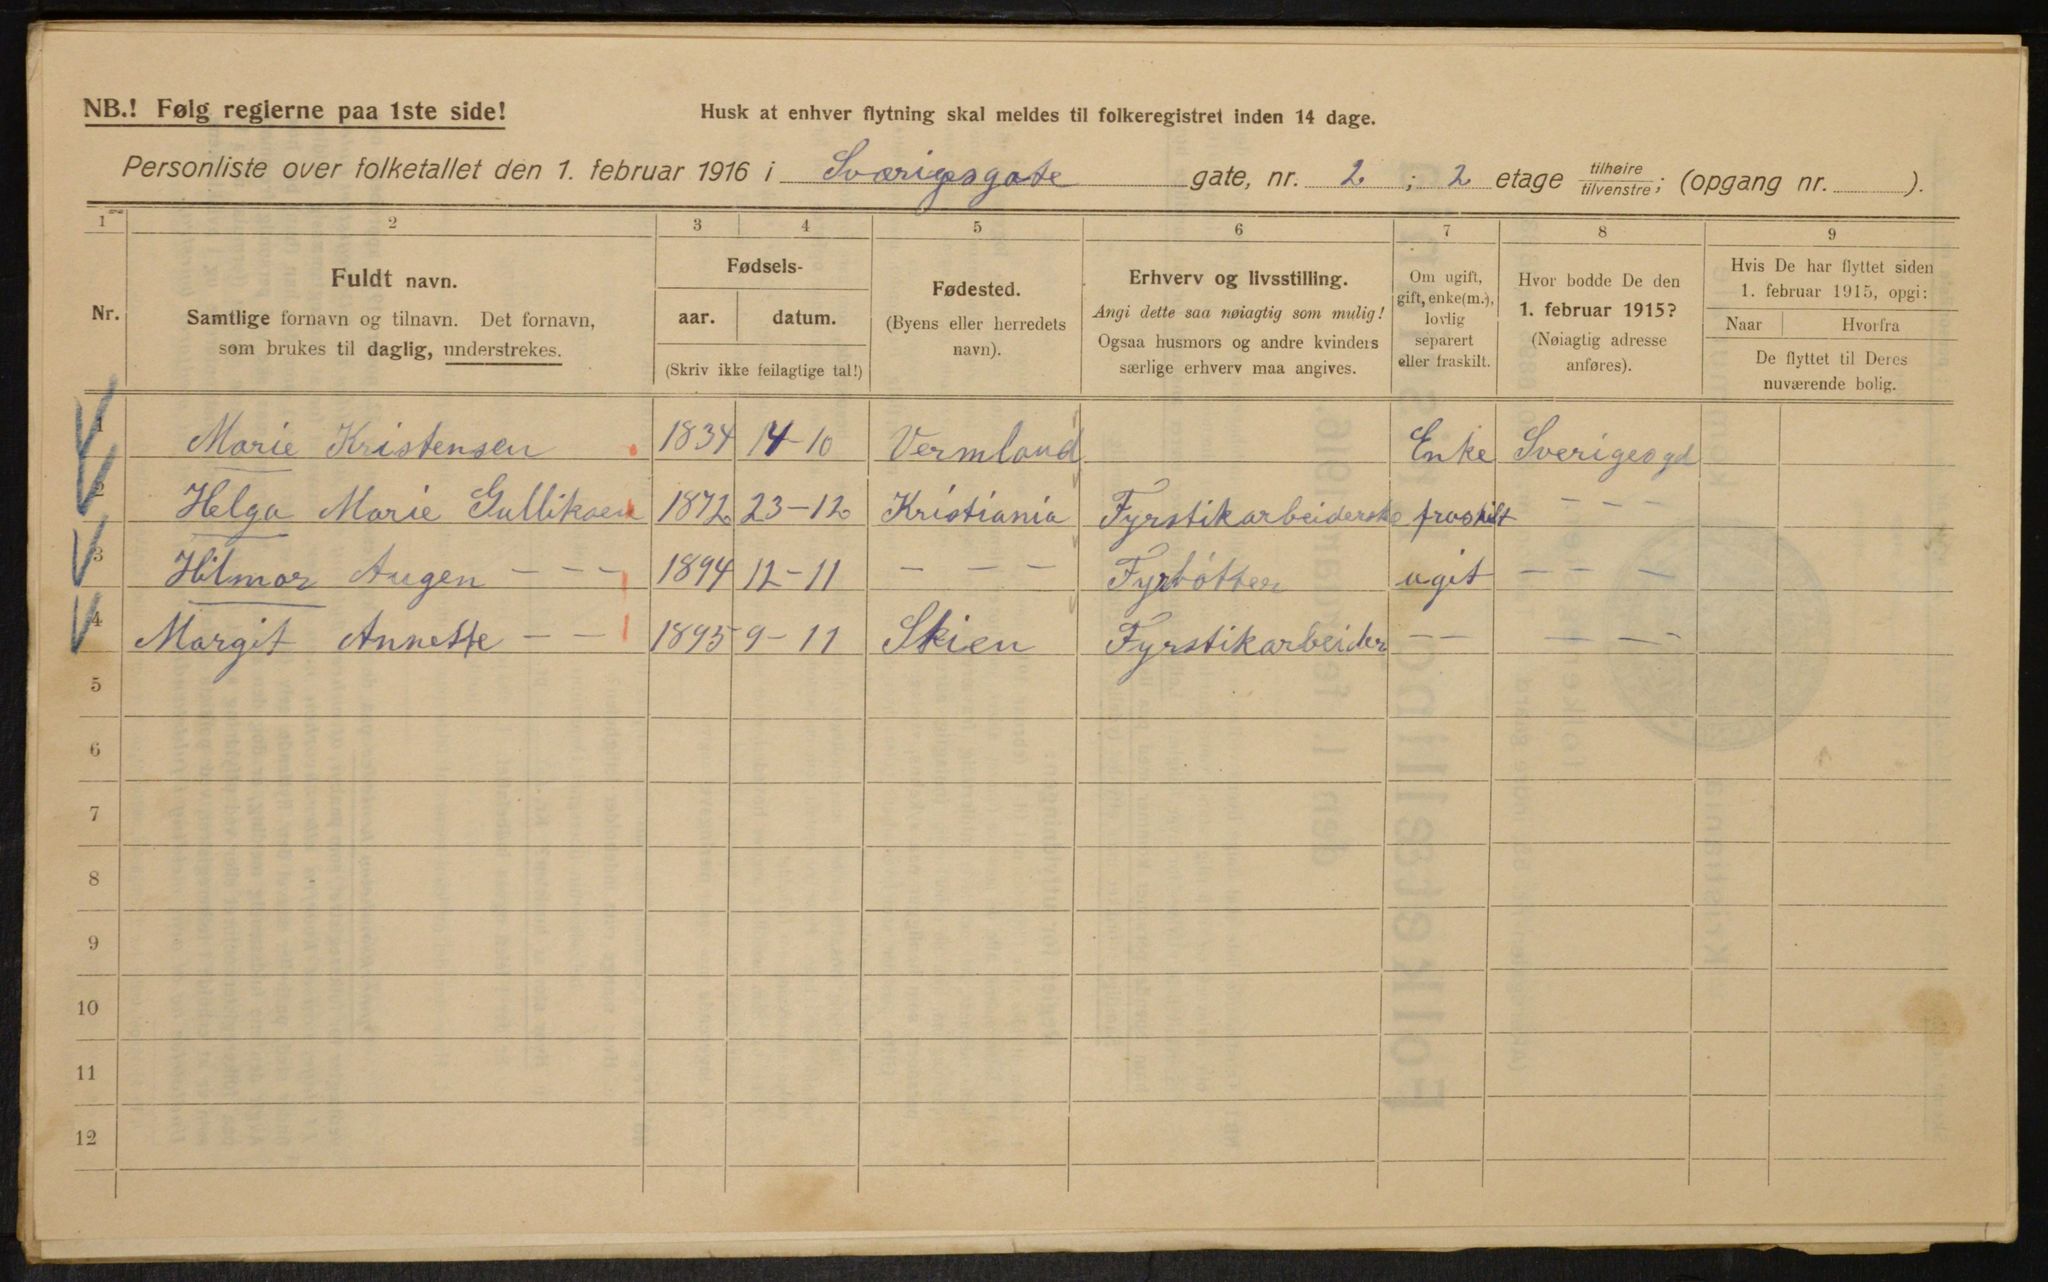 NB.! Følg reglerne paa 1ste side!
Husk at enhver flytning skal meldes til folkeregistret inden 14 dage.
Personliste over folketallet den 1. februar 1916 i Sværigesgate gate, nr. 2 ; 2 etage tilhøire/tilvenstre; (opgang nr. ).
1 2 3 4 5 6 7 8 9
Nr.
Fuldt navn.
Samtlige fornavn og tilnavn. Det fornavn,
som brukes til daglig, understrekes.
Fødsels-
aar. datum.
(Skriv ikke feilagtige tal!)
Fødested.
(Byens eller herredets
navn).
Erhverv og livsstilling.
Angi dette saa nøiagtig som mulig!
Ogsaa husmors og andre kvinders
særlige erhverv maa angives.
Om ugift,
gift, enke(m.),
lovlig
separert
eller fraskilt.
Hvor bodde De den
1. februar 1915?
(Nøiagtig adresse
anføres).
Hvis De har flyttet siden
1. februar 1915, opgi:
Naar Hvorfra
De flyttet til Deres
nuværende bolig.
1 Marie Kristensen 1834 14-10 Vermland Enke Sverigesgd
2 Helga Marie Gulliksen 1872 23-12 Kristiania Fyrstikarbeiderske fraskilt - - -
3 Hilmar Augen - - - 1894 12-11 - - - Fyrbøtter ugit - - -
4 Margit Annette - - 1895 9-11 Skien Fyrstikarbeider - - - - -
5
6
7
8
9
10
11
12